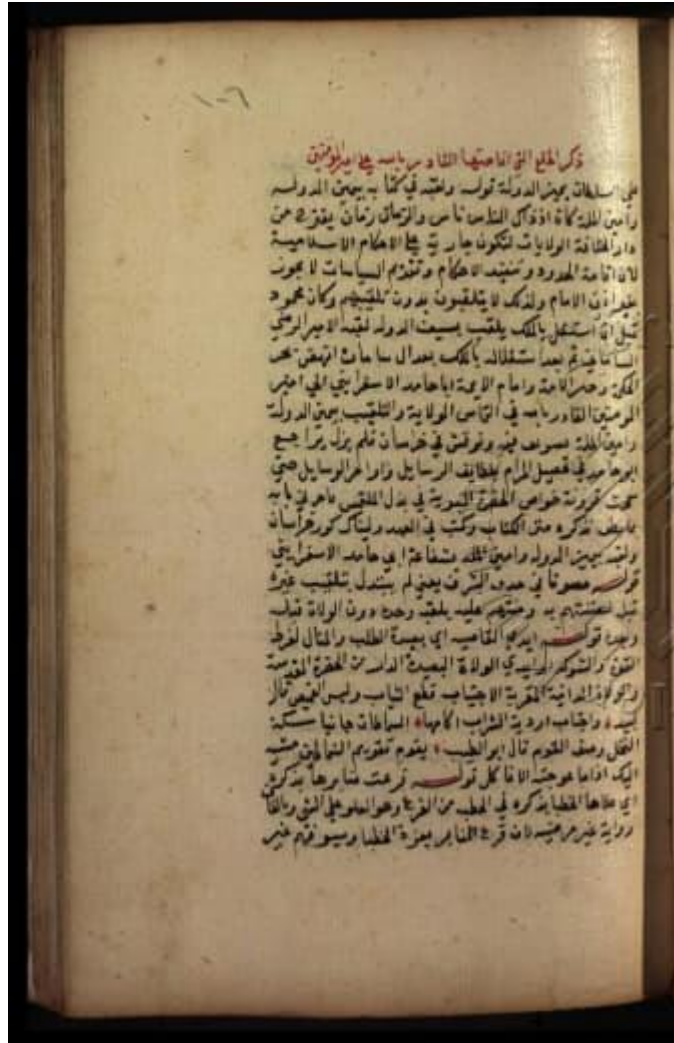 ١٠٦
ذكر الخلع التي افاضها القادر بالله امير المؤمنين
على السلطان يمين الدولة قوله ولقبه في كتابه بيمين الدولة
وامين الملة كان اذ ذاك الناس ناس والزمان زمان
دار الخلافة الولايات لتكون جارية على الاحكام الاسلامية
لان اقامة الحدود وتنفيذ الاحكام وتقديم السياسات لا يجوز
بغير اذن الامام ولذلك لا يتلقبون بدون تلقيبهم وكان محمود
قبل ان استقل بالملك يلقب بسيف الدولة لقبه الامير الرضي
الساماني ثم بعد استقلاله بالملك بعد ال سامان انهض بحر
وحبر الامة وامام الايمة ابا حامد الاسفرايني الى امير
المومنين القادر بالله في التماس الولاية والتلقيب بيمين الدولة
وامين الملة فيه ونوقش في خراسان فلم يزل يراجع
ابو حامد في تحصيل المرام بلطايف الرسايل واواخر الوسايل حتى
سمحت قرونة خواص الحضرة النبوية في بذل الملتمس
متن الكتاب وكتب في العهد وليناك كور خراسان
ولقبه بيمين الدولة وامين الملة بشفاعة ابي حامد الاسفرايني
قوله مصونا في صدف الشرف يعني لم يبتذل بتلقيب غيره
قبل به عليه بلقبه وحده دون الولاة
قوله ايدي اي بعيدة الطلب والمنال لفرط
القوة والشوكة او ايدي الولاة البعيدة الدار من الحضرة المقدسة
والولاة الدانية المقربة الاجتياب قطع الثياب ولبس القميص قال
لبيد واجتاب اردية السراب اكامها السماطان جانبا سكة
النخل وصف القوم قال ابو الطيب يقوم تقويم السماطين مشيه
اليك اذا ما عوجته الافاكل قوله فرعت منابرها بذكره
اي علاها الخطبا بذكره في الخطب من الفرع وهو العلو على الشي وبالقاف
رواية غير مرضية لان قرع المنابر الخطبا غير